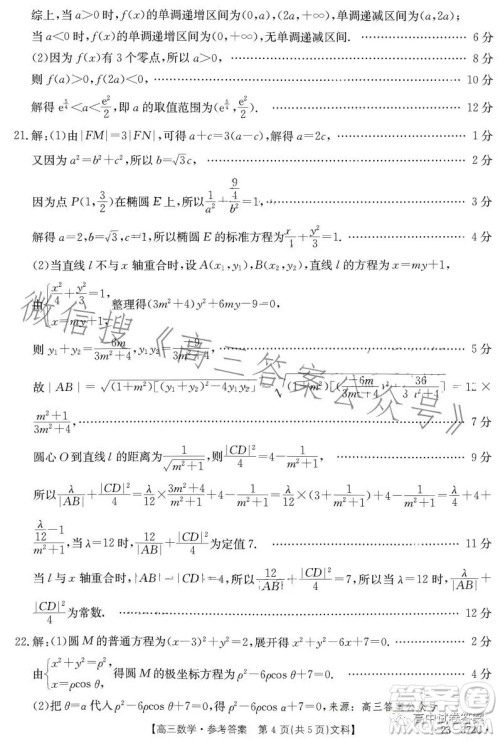 综上,当a>0时,f(x)的单调递增区间为(0,a),(2a,+∞),单调递减区间为(a,2a);
当a<0时,f(x)的单调递增区间为(0,+∞),无单调递减区间. 6分
(2)因为f(x)有3个零点,所以a>0, 8分
则f(a)>0,f(2a)<0, 10分
解得e^{5/4}<a<e²/2,即a的取值范围为(e^{5/4},e²/2). 12分
21.解:(1)由|FM|=3|FN|,可得a+c=3(a−c),解得a=2c, 1分
又因为a²=b²+c²,所以b=√3c, 2分
因为点P(1,3/2)在椭圆E上,所以1/a²+(9/4)/b²=1, 3分
解得a=2,b=√3,所以椭圆E的标准方程为x²/4+y²/3=1. 4分
(2)当直线l不与x轴重合时,设A(x₁,y₁),B(x₂,y₂),直线l的方程为x=my+1,
由{x²/4+y²/3=1, x=my+1,整理得(3m²+4)y²+6my−9=0,
则y₁+y₂= 6m/(3m²+4),y₁y₂= 5分
故|AB|=√((1+m²)[(y₁+y₂)²−4y₁y₂])= =12×
(m²+1)/(3m²+4), 7分
圆心O到直线l的距离为1/√(m²+1),则|CD|²/4=4−1/(m²+1), 9分
所以λ/|AB|+|CD|²/4=λ/12×(3m²+4)/(m²+1)+4−1/(m²+1)=λ/12×(3+1/(m²+1))+4−1/(m²+1)=λ/4+4+
(λ/12−1)/(m²+1),当λ=12时,12/|AB|+|CD|²/4为定值7. 11分
当直线l与x轴重合时,|AB|=4,|CD|=4,所以当λ=12时,12/|AB|+|CD|²/4=7,故存在λ=12,使得λ/|AB|+
|CD|²/4为常数. 12分
22.解:(1)圆M的普通方程为(x−3)²+y²=2,展开得x²+y²−6x+7=0. 2分
由{x²+y²=ρ², x=ρcosθ,得圆M的极坐标方程为ρ²−6ρcosθ+7=0. 4分
(2)把 代入ρ²−6ρcosθ+7=0,来源:高三答案公众号
【高三数学·参考答案 第4页(共5页)文科】
微信搜《高三答案公众号》
高中试卷答案